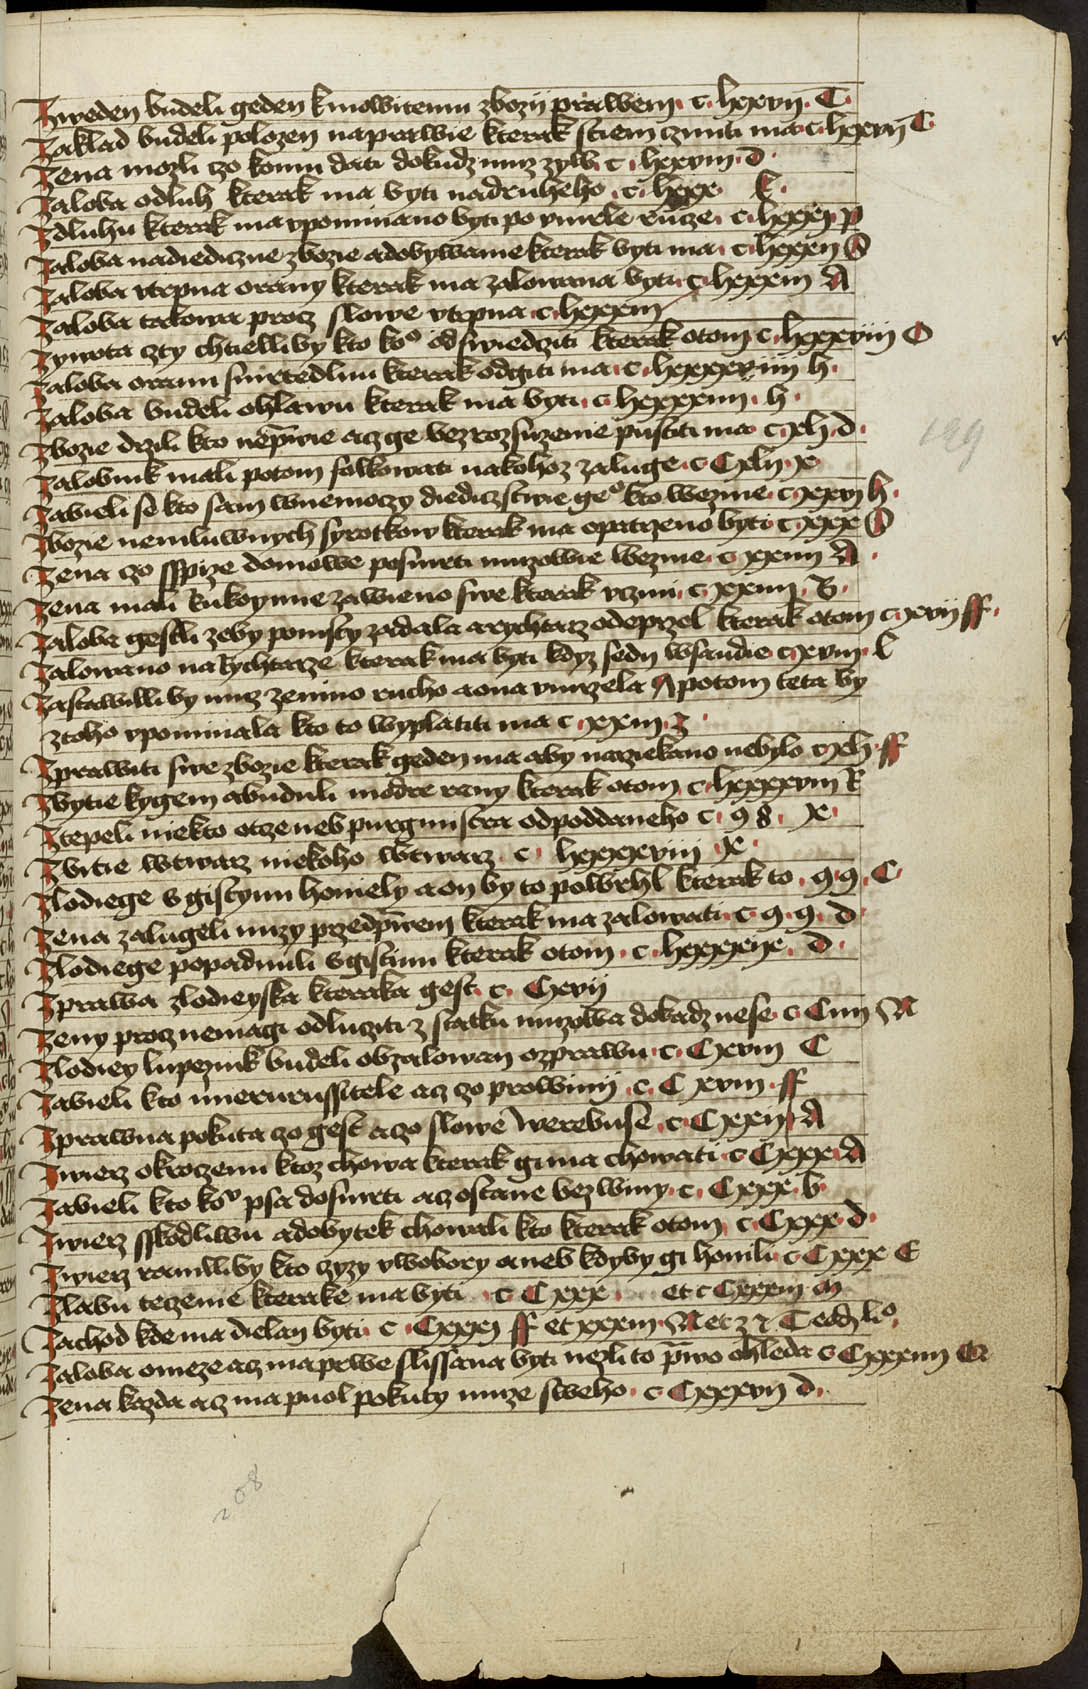 Zweden budeli geden kmowitemu zbozij prawem c lxxvij C
Zaklad budeli polozen naprawie kterak stiem czyniti ma c lxxvij C
Zena mozli czo komu dati dokudz muz zyw c lxxviij d
Zaloba odluh kterak ma byti nadruheho c lxxx C
Zdluhu kterak ma vpominano byti po vmrle rucze c lxxxj p
Zaloba nadiediczne zbozie adobywanie kterak byti ma c lxxxij
Zaloba vtrpna orany kterak ma zalowana byti c lxxxiij A
Zaloba takowa procz slowe vtrpna c lxxxiij
Zywota czty chtielliby kto ko° odswiedcziti kterak otom c lxxxviij O
Zaloba oranu smrtedlnu kterak odgiti ma c lxxxxviiij h
Zaloba budeli ohlawu kterak ma byti c lxxxxiiij h
Zbozie drzili kto neprwie acz ge bezrozsuzenie pustiti ma c xlj d
Zalobnik mali potom solkowati nakohoz zaluge c Cxlij x
Zabieli se kto sam wnemoczy diedicztwie ge° kto wezme c xxvj h
Zbozie nemluwnych syrotkow kterak ma opatrzeno byti c xxx
Zena czo sspize domowe posmrti muzowie wezme c xxiiij A
Zena mali rukoymie zawieno swe kterak vczini c xxiiij B
Zaloba gestli zeby pomsty zadala arychtarz odeprzel kterak otom c xvij ff
Zalowano na Rychtarze kterak ma byti kdyz sedij wsaudie c xviij C
Zastawilliby muz zenino rucho aona vmrzela A potom teta by
ztoho vpominala kto to wyplatiti ma c xxiij z
Zprawiti swe zbozie kterak geden ma aby narziekano nebylo c xlj ff
Zbytie kygem abuduli modre rany kterak otom c lxxxxviij R
Ztepeli niekto otcze neb purgmistra odpoddaneho c 98 x
Zbitie wtwarz niekoho wtwarz c lxxxxviij x
Zlodiege s gistynu honiely aon by to powrhl kterak to 99 C
Zena zalugeli muzy przedprwem kterak ma zalowati c 99 d
Zlodiege popadnuli sgistinu kterak otom c lxxxxix d
Zprawa zlodieyska kteraka gest c Cxvij
Zeny procz nemagi odlucziti z statku muzowa dokadz nese c Ciiij N
Zlodiey lupeznik budeli obzalowan ozprawu c Cxviij C
Zabieli kto mierurussitele acz zo prowinij c C xviij ff
Zprawna pokuta czo gest aczo slowe werebuse c Cxxij A
Zwierz okroczenu ktoz chowa kterak gi ma chowati c Cxxx A
Zabieli kto ko° psa dosmrti acz ostane bez winy c Cxxx b
Zwierz sskodliwu adobytek chowali kto kterak otom c Cxxx d
Zwierz ranilliby kto czyzy vwobory aneb kdyby gi honili c Cxxx E
Zlabu teczenie kterake ma byti c Cxxx et c Cxxxiij m
Zachod kde ma dielan byti c Cxxxj ff et xxxiij
Zaloba omeze acz ma prwe slissana byti nezli to prwo ohleda c Cxxxiiij
Zena kazda acz ma puol pokuty muze sweho c Cxxxvij d
129
208